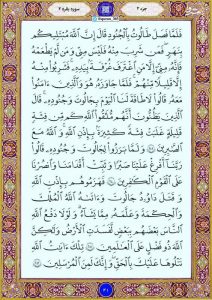 جزء ۲
سوره بقره ۲
فَلَمَّا فَصَلَ طَالُوتُ بِٱلْجُنُودِ قَالَ إِنَّ ٱللَّهَ مُبْتَلِيكُم
بِنَهَرٍ فَمَن شَرِبَ مِنْهُ فَلَيْسَ مِنِّى وَمَن لَّمْ يَطْعَمْهُ
فَإِنَّهُۥ مِنِّىٓ إِلَّا مَنِ ٱغْتَرَفَ غُرْفَةًۢ بِيَدِهِۦ فَشَرِبُوا۟ مِنْهُ
إِلَّا قَلِيلًا مِّنْهُمْ فَلَمَّا جَاوَزَهُۥ هُوَ وَٱلَّذِينَ ءَامَنُوا۟
مَعَهُۥ قَالُوا۟ لَا طَاقَةَ لَنَا ٱلْيَوْمَ بِجَالُوتَ وَجُنُودِهِۦ قَالَ
ٱلَّذِينَ يَظُنُّونَ أَنَّهُم مُّلَٰقُوا۟ ٱللَّهِ كَم مِّن فِئَةٍ
قَلِيلَةٍ غَلَبَتْ فِئَةً كَثِيرَةًۢ بِإِذْنِ ٱللَّهِ وَٱللَّهُ مَعَ
ٱلصَّٰبِرِينَ ٢٤٩ وَلَمَّا بَرَزُوا۟ لِجَالُوتَ وَجُنُودِهِۦ قَالُوا۟
رَبَّنَآ أَفْرِغْ عَلَيْنَا صَبْرًا وَثَبِّتْ أَقْدَامَنَا وَٱنصُرْنَا
عَلَى ٱلْقَوْمِ ٱلْكَٰفِرِينَ ٢٥٠ فَهَزَمُوهُم بِإِذْنِ ٱللَّهِ
وَقَتَلَ دَاوُۥدُ جَالُوتَ وَءَاتَىٰهُ ٱللَّهُ ٱلْمُلْكَ
وَٱلْحِكْمَةَ وَعَلَّمَهُۥ مِمَّا يَشَآءُ وَلَوْلَا دَفْعُ ٱللَّهِ
ٱلنَّاسَ بَعْضَهُم بِبَعْضٍ لَّفَسَدَتِ ٱلْأَرْضُ وَلَٰكِنَّ
ٱللَّهَ ذُو فَضْلٍ عَلَى ٱلْعَٰلَمِينَ ٢٥١ تِلْكَ ءَايَٰتُ ٱللَّهِ
نَتْلُوهَا عَلَيْكَ بِٱلْحَقِّ وَإِنَّكَ لَمِنَ ٱلْمُرْسَلِينَ ٢٥٢
۴۱